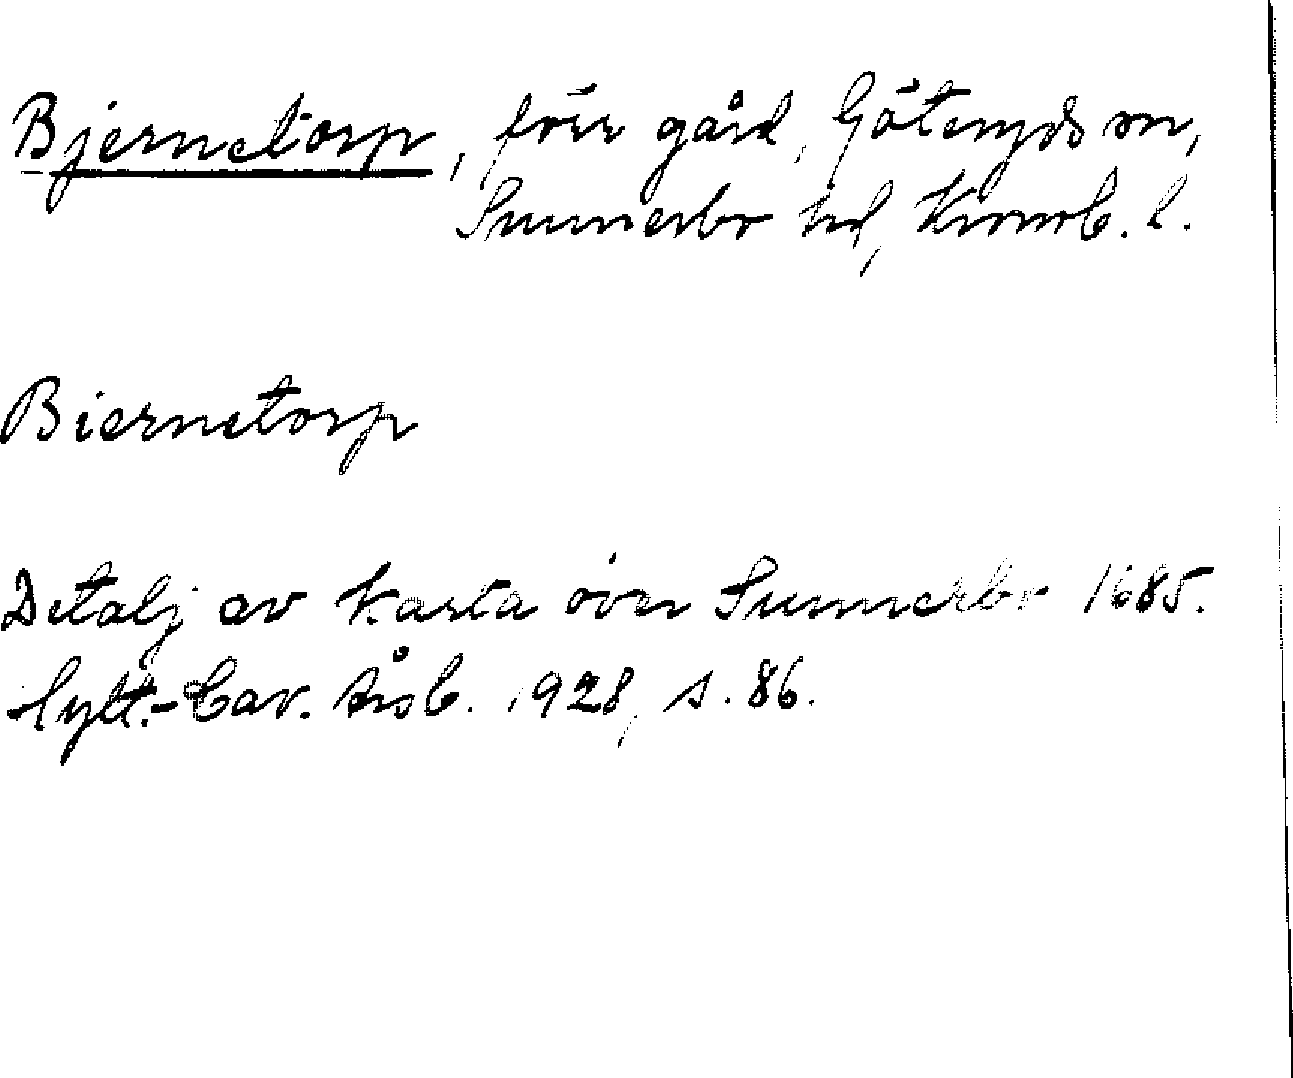 Bjernetorp, förr gård, Göteryds sn,
Sunnerbo hd, Kronob. l.
Biernetorp
Detalj av karta över Sunnerbo 1685.
Hylt.-Cav. årsb. 1928, s. 86.